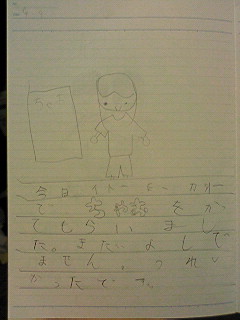 ちゃお
今日イトーヨーカドー
でちゃおをか
てもらいまし
た。
ません。うれし
かったです。